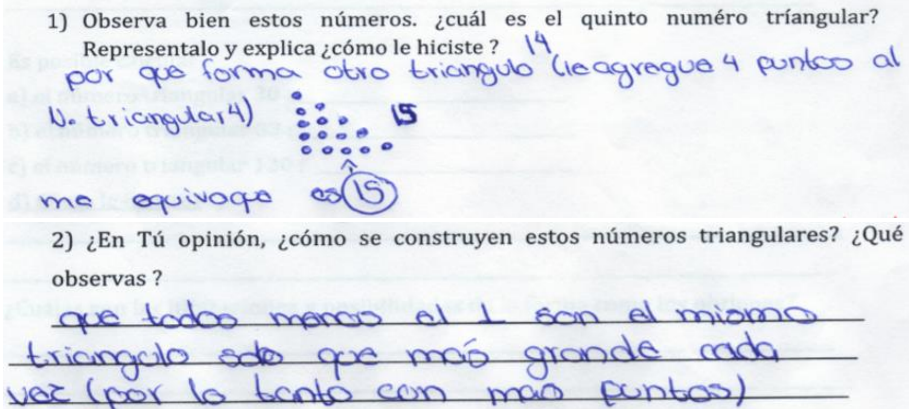 1) Observa bien estos números. ¿cuál es el quinto numéro tríangular?
Representalo y explica ¿cómo le hiciste ? 14
por que forma otro triangulo (le agregue 4 puntos al
N. triangular 4) 15
me equivoque es 15
2) ¿En Tú opinión, ¿cómo se construyen estos números triangulares? ¿Qué
observas ?
que todos menos el 1 son el mismo
triangulo solo que mas grande cada
vez (por lo tanto con mas puntos)